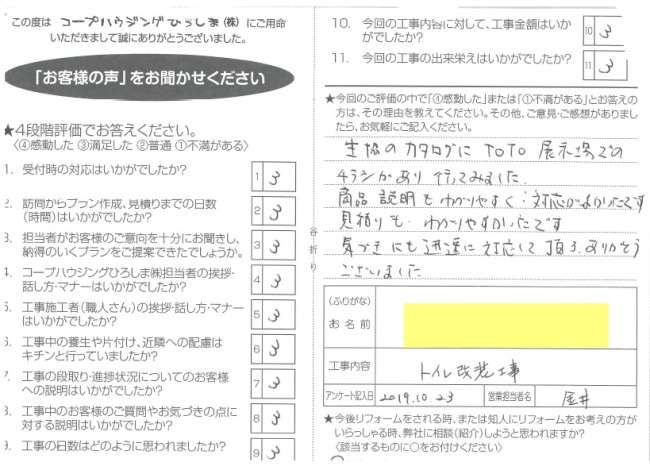 この度は コープハウジングひろしま(株) にご用命
いただきまして誠にありがとうございました。
「お客様の声」をお聞かせください
★4段階評価でお答えください。
〈④感動した ③満足した ②普通 ①不満がある〉
1. 受付時の対応はいかがでしたか?
1 3
2. 訪問からプラン作成、見積りまでの日数
(時間)はいかがでしたか?
2 3
3. 担当者がお客様のご意向を十分にお聞きし、
納得のいくプランをご提案できたでしょうか。
3 3
4. コープハウジングひろしま㈱担当者の挨拶・
話し方・マナーはいかがでしたか?
4 3
5. 工事施工者(職人さん)の挨拶・話し方・マナー
はいかがでしたか?
5 3
6. 工事中の養生や片付け、近隣への配慮は
キチンと行っていましたか?
6 3
7. 工事の段取り・進捗状況についてのお客様
への説明はいかがでしたか?
7 3
8. 工事中のお客様のご質問やお気づきの点に
対する説明はいかがでしたか?
8 3
9. 工事の日数はどのように思われましたか?
9 3
谷折り
10. 今回の工事内容に対して、工事金額はいか
がでしたか?
10 3
11. 今回の工事の出来栄えはいかがでしたか?
11 3
★今回のご評価の中で「④感動した」または「①不満がある」とお答えの
方は、その理由を教えてください。その他、ご意見・ご感想がありまし
たら、お気軽にご記入ください。
生協のカタログに TOTO 展示場での
チラシがあり 行ってみました
商品説明もわかりやすく 対応がよかったです
見積りも わかりやすかったです
気づきにも迅速に対応して頂き ありがとう
ございました
(ふりがな)
お名前
工事内容
トイレ改装工事
アンケート記入日 2019.10 23 営業担当者名
★今後リフォームをされる時、または知人にリフォームをお考えの方が
いらっしゃる時、弊社に相談(紹介)しようと思われますか?
〈該当するものに○をお付けください〉